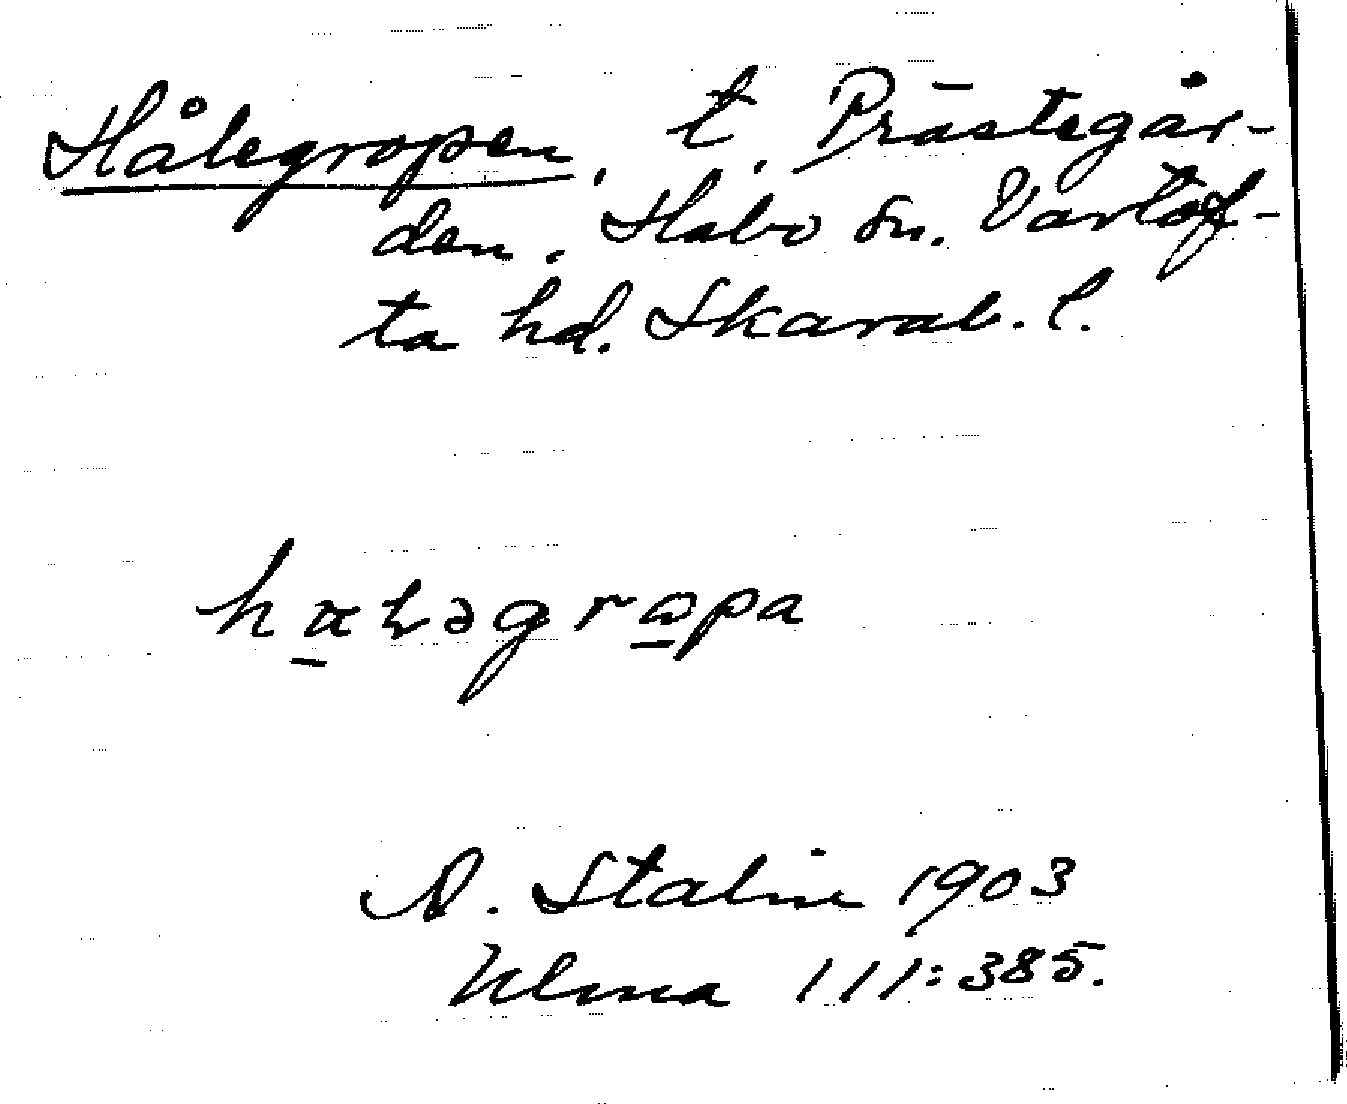 Hålegropen, t. Prästegår-
den, Habo sn. Vartof-
ta hd. Skarab. l.
hαləgrapa
A. Stalin 1903
Ulma 111:385.